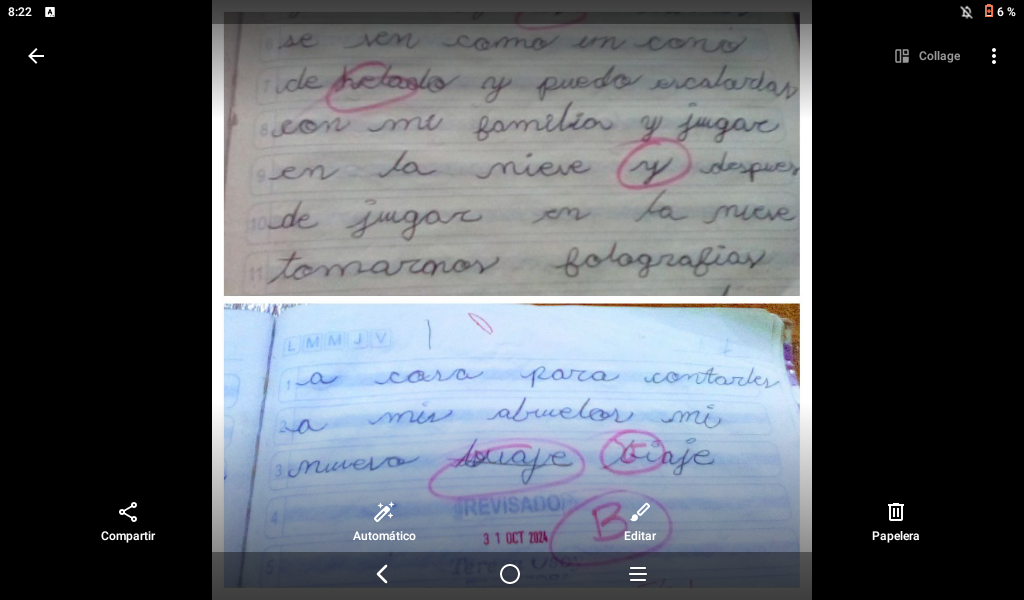 8:22
6 %
Collage
6 se ven como un cono
7 de helado y puedo escalarlas
8 con mi familia y jugar
9 en la nieve y despues
10 de jugar en la nieve
11 tomarnos fotografias
L M M J V
1 a casa para contarles
2 a mis abuelos mi
3 nuevo viaje
4 REVISADO B
31 OCT 2024
5
Compartir
Automático
Editar
Papelera